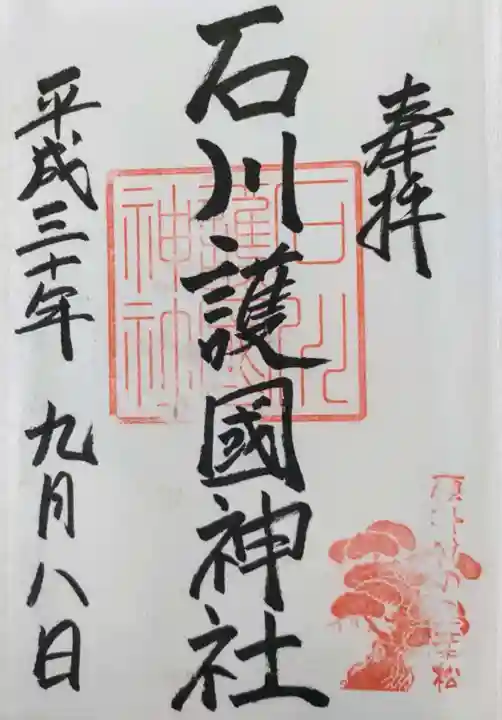 奉拝
石川護國神社
平成三十年 九月八日
石川
護國
神社